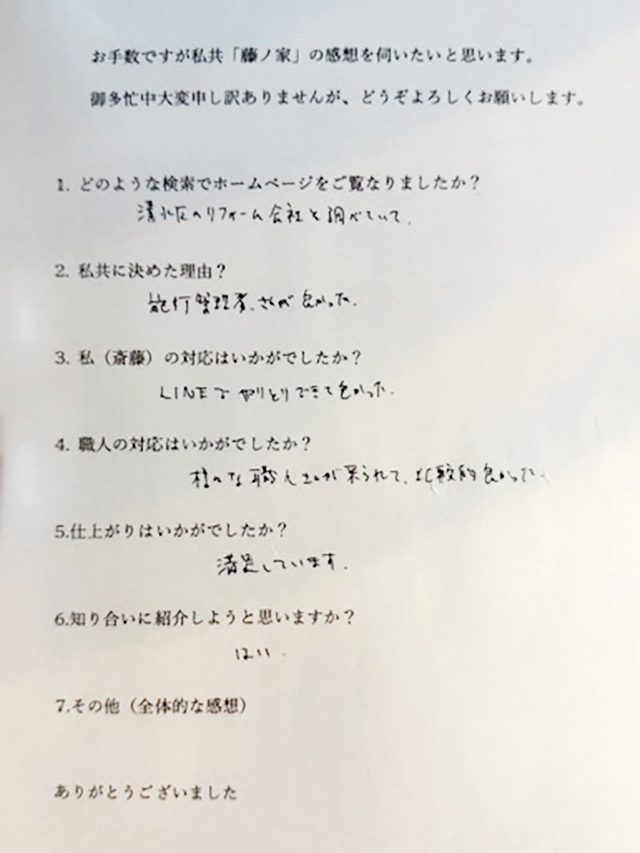 お手数ですが私共「藤ノ家」の感想を伺いたいと思います。
御多忙中大変申し訳ありませんが、どうぞよろしくお願いします。
1. どのような検索でホームページをご覧なりましたか？
清水区のリフォーム会社と調べていて.
2. 私共に決めた理由？
施行管理者さんが良かった.
3. 私（斎藤）の対応はいかがでしたか？
LINEでやりとりできて良かった.
4. 職人の対応はいかがでしたか？
様々な職人さんが来られて、比較的良かった.
5.仕上がりはいかがでしたか？
満足しています.
6.知り合いに紹介しようと思いますか？
はい.
7.その他（全体的な感想）
ありがとうございました